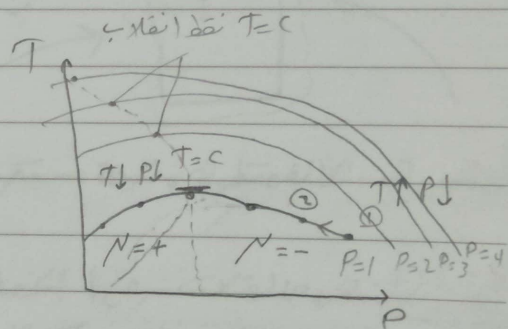 نقط انقلاب T=C
T
T=C
T↓ P↓
②
T↑ P↓
①
N=+
N=-
P=1 P=2 P=3 P=4
P